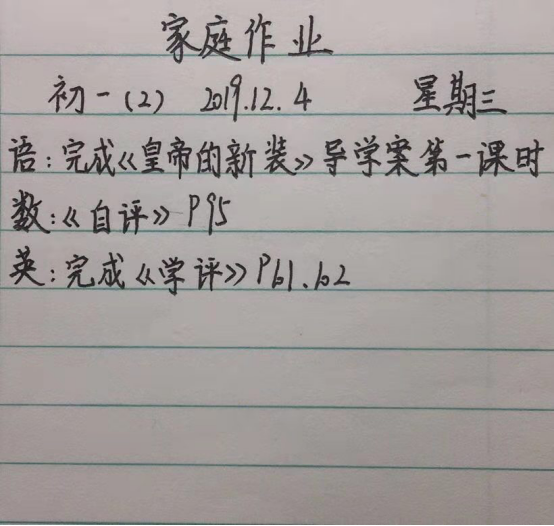 家庭作业
初一(2) 2019.12.4 星期三
语:完成《皇帝的新装》导学案第一课时
数:《自评》P95
英:完成《学评》P61.62